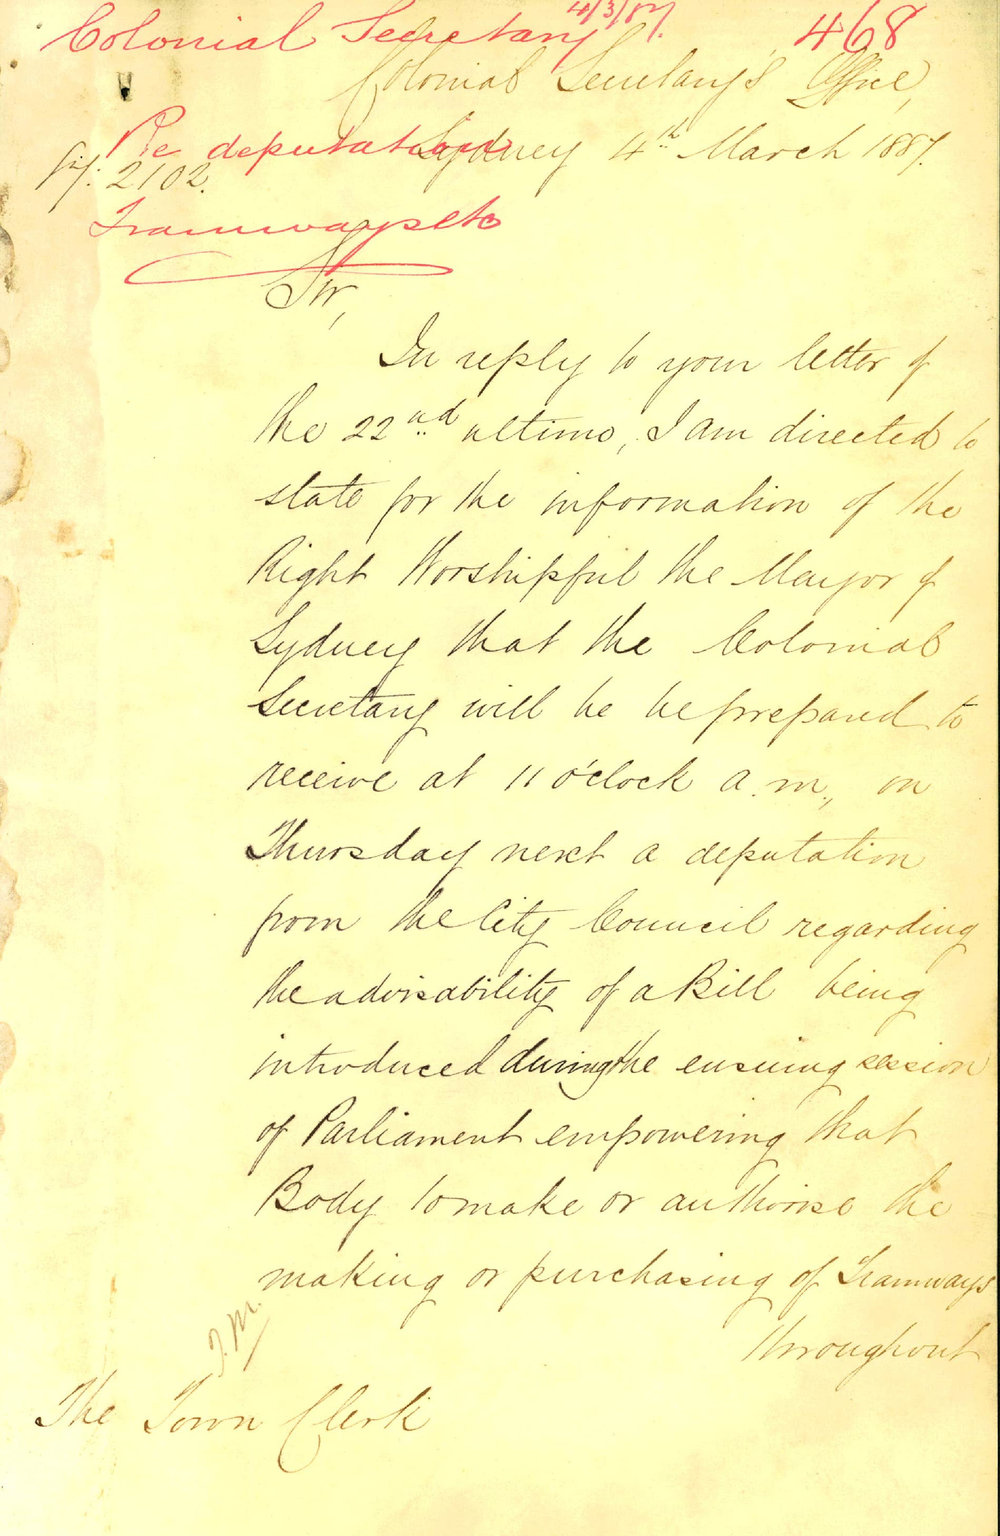 Colonial Secretary 4/3/87. 468
Colonial Secretary's Office,
Re deputation
Sydney 4th March 1887.
2102.
Tramways etc
Sir,
In reply to your letter of
the 22nd ultimo, I am directed to
state for the information of the
Right Worshipful the Mayor of
Sydney that the Colonial
Secretary will be be prepared to
receive at 11 o'clock a.m., on
Thursday next a deputation
from the City Council regarding
the advisability of a Bill being
introduced during the ensuing session
of Parliament empowering that
Body to make or authorise the
making or purchasing of Tramways
throughout
The Town Clerk